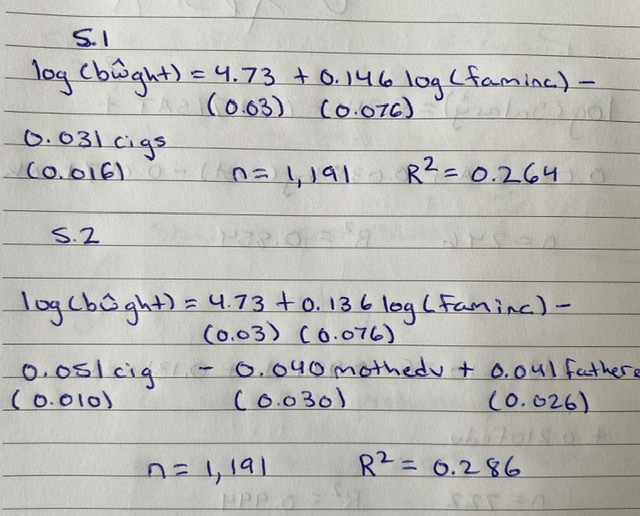 5.1
log(bŵght) = 4.73 + 0.146 log(faminc) -
(0.03) (0.076)
0.031 cigs
(0.016) n = 1,191 R² = 0.264
5.2
log(bŵght) = 4.73 + 0.136 log(faminc) -
(0.03) (0.076)
0.051 cig - 0.040 mothedu + 0.041 fathere
(0.010) (0.030) (0.026)
n = 1,191 R² = 0.286